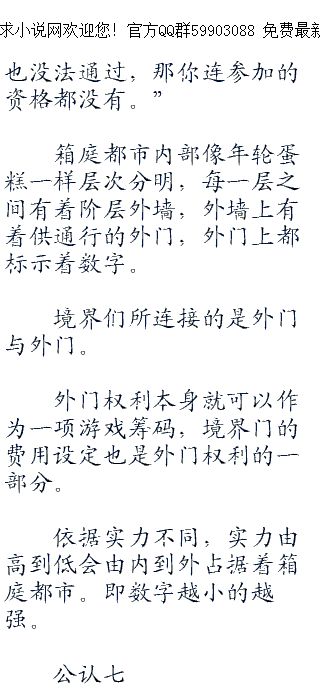 求小说网欢迎您！官方QQ群59903088 免费最新
也没法通过，那你连参加的
资格都没有。”
箱庭都市内部像年轮蛋
糕一样层次分明，每一层之
间有着阶层外墙，外墙上有
着供通行的外门，外门上都
标示着数字。
境界们所连接的是外门
与外门。
外门权利本身就可以作
为一项游戏筹码，境界门的
费用设定也是外门权利的一
部分。
依据实力不同，实力由
高到低会由内到外占据着箱
庭都市。即数字越小的越
强。
公认七